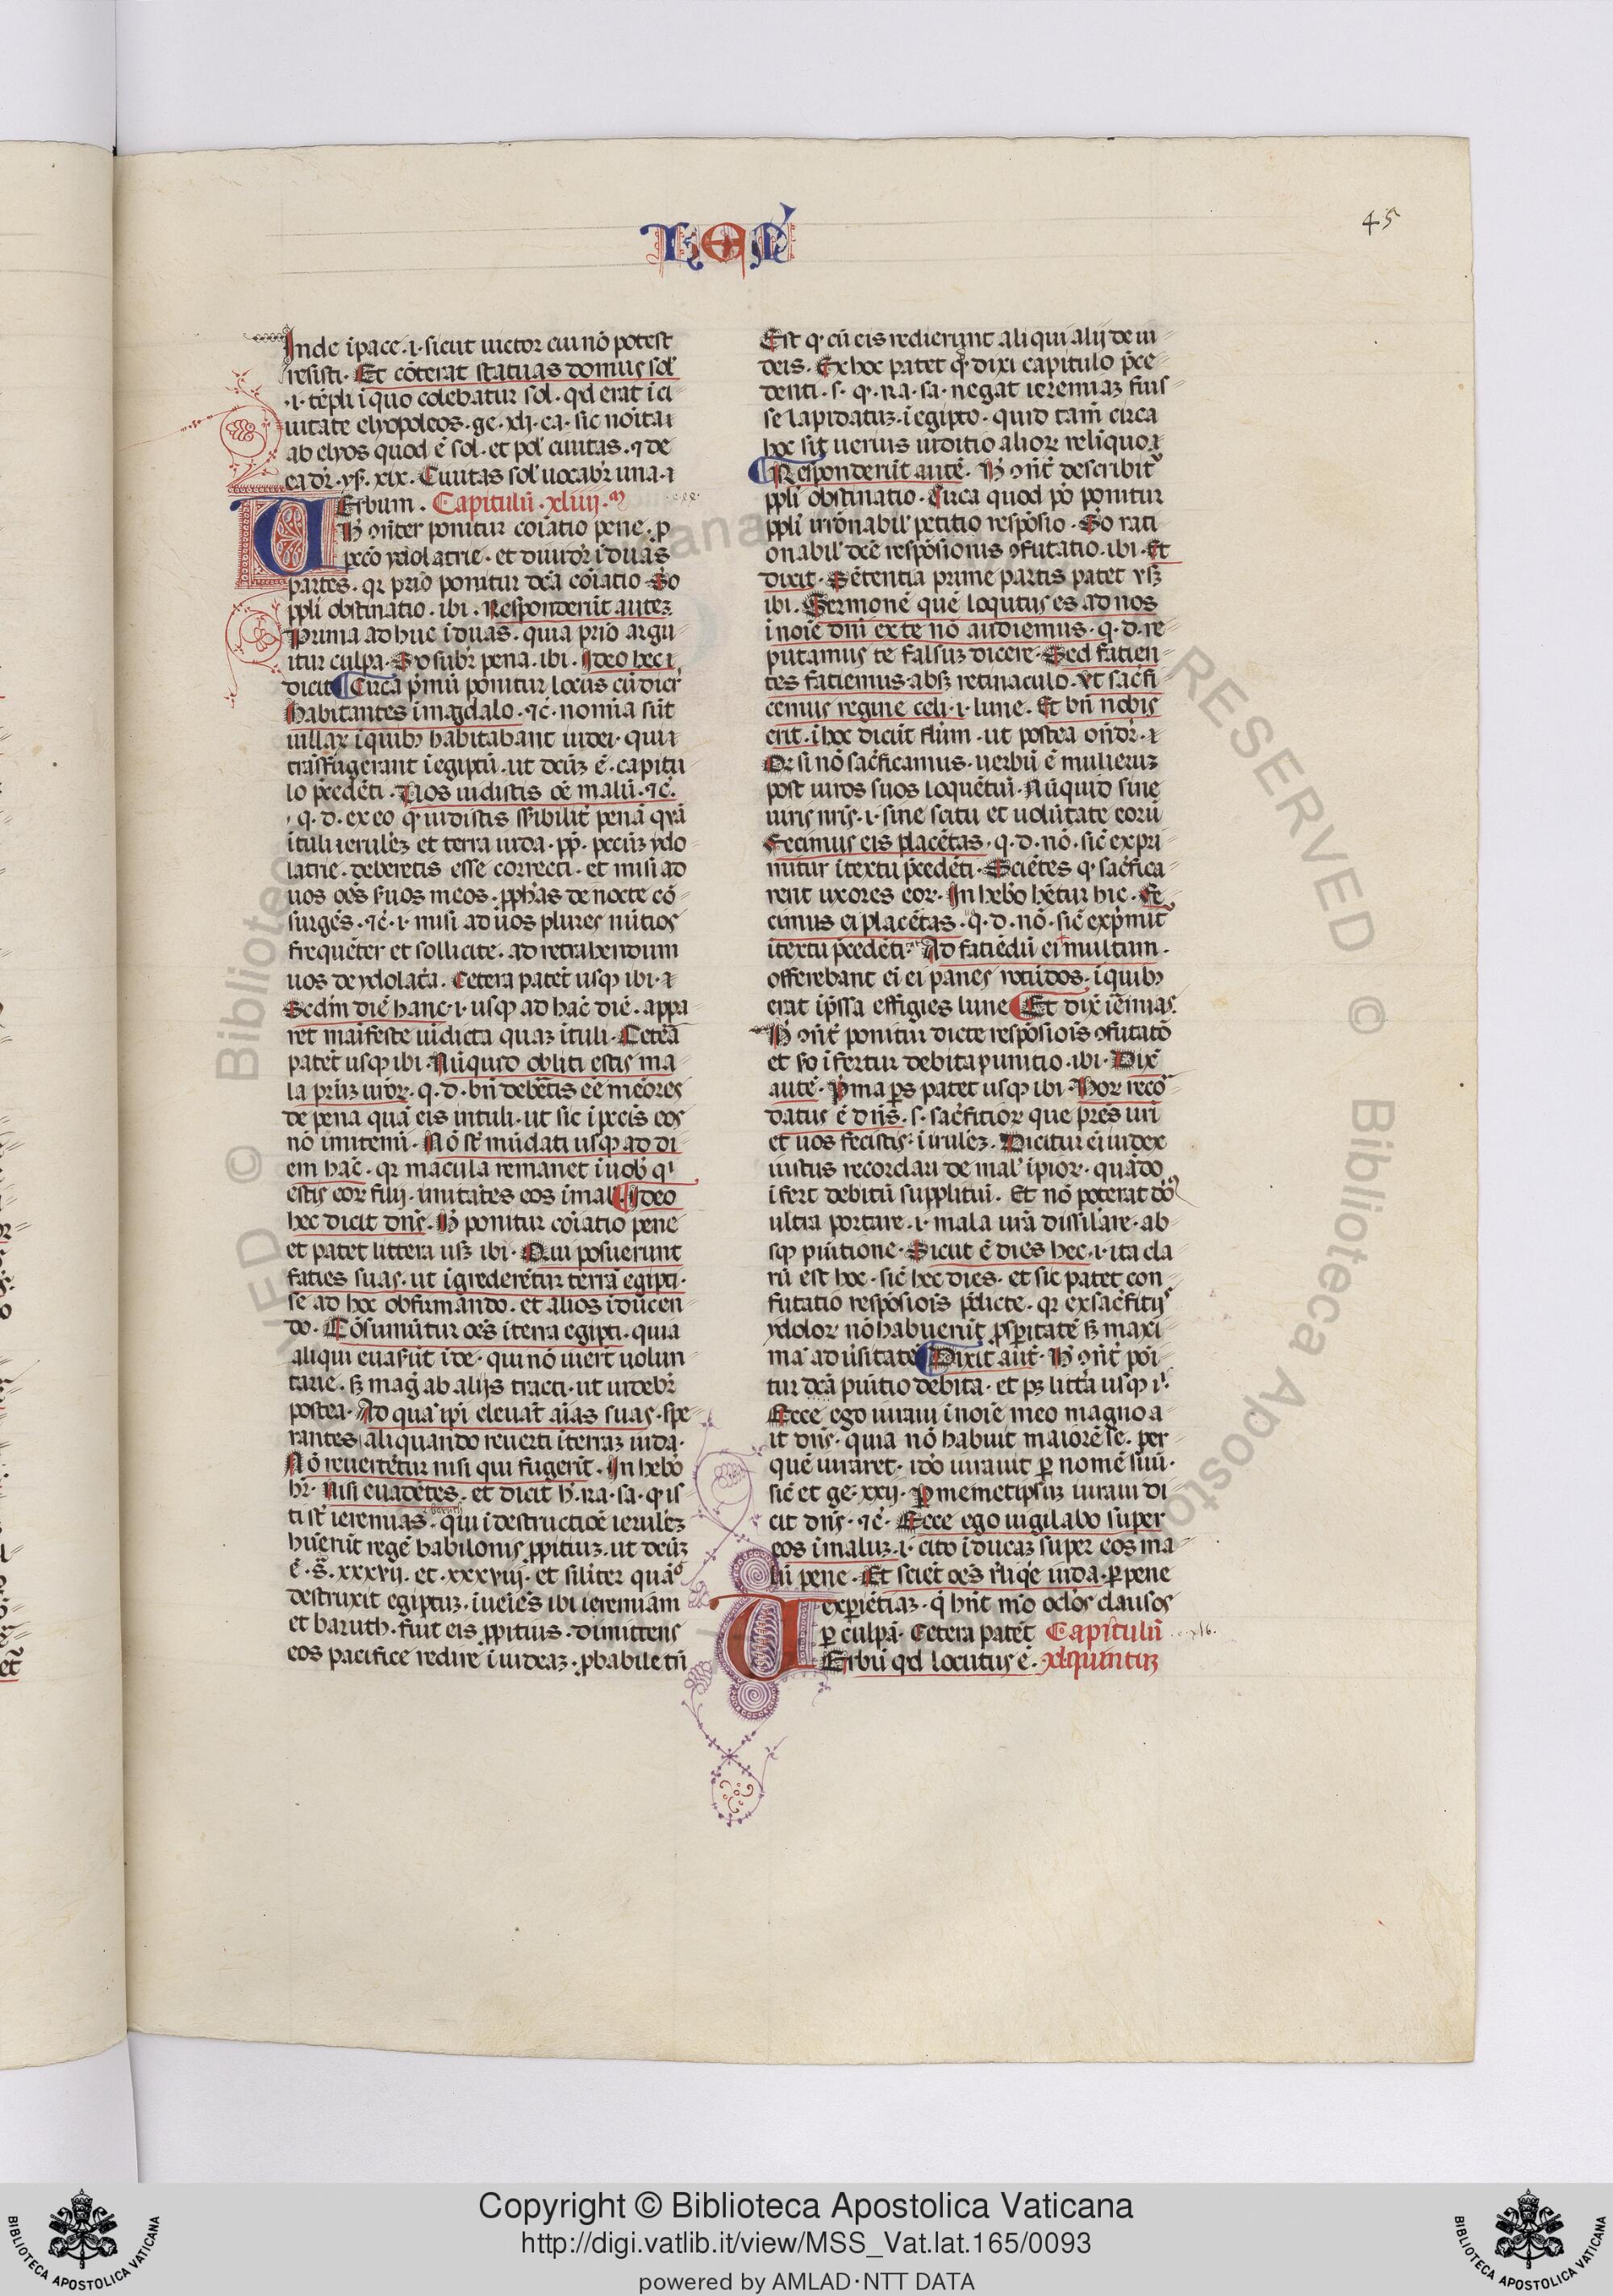 45
Inde i pace .i. sicut uictor cui nō potest
resisti. Et cōterat statuas domus sol'
.i. tēpli i quo colebatur sol. qd erat i ci
uitate elyopoleos. ge. xlj. ca. sic noīta
ab elyos quod ē sol. et pol' ciuitas. ⁊ de
ea dr̄. ys. xix. Ciuitas sol' uocabr̄ una.
UErbum. Capitulū .xliiij.m
H̄ ꝯñter ponitur cōiatio pene. p
peccō ydolatrie. et diuidr̄ i duas
partes. qr prīo ponitur dcā cōiatio So
ppli obstinatio. ibi. Responderūt autez
Prima adhuc i duas. quia prīo argu
itur culpa. So subr̄ pena. ibi. Ideo hec
dicit Circa pͥmū ponitur locus cū dicr̄
habitantes i magdalo. ⁊c̄. nomīa sūt
uillaꝝ i quibꝫ habitabant iudei. quia
trāsfugerant i egiptū. ut dcūz ē. capitu
lo pcedēti. Uos uidistis oē malū. ⁊c̄.
.q. d. ex eo q uidistis sēsibilit̄ penā quā
ituli ierulēz et terra iuda. pp. pccūz ydo
latrie. deberetis esse correcti. et misi ad
uos oēs s̄uos meos. pphās de nocte cō
surgēs. ⁊c̄. i. misi ad uos plures nūtios
frequēter et sollicite. ad retrahendum
uos de ydolatā. Cetera patēt usꝗ ibi.
Sedm̄ diē hanc. i. usꝗ ad hāc diē. appa
ret maīfeste uidicta quaz ituli. Ceterā
patēt usꝗ ibi. Nūquid obliti estis ma
la prūz uiroꝝ. q. d. bn̄ debetis eē mēores
de pena quā eis intuli. ut sic i pccīs eos
nō imitemī. Nō st̄ mūdati usꝗ ad di
em hāc. qr macula remanet i uob' qͥ
estis eoꝝ filij. imitātes eos i mal' Ideo
hec dicit dn̄s. H̄ ponitur cōiatio pene
et patet littera usꝫ ibi. Qui posuerunt
faties suas. ut igrederētur terrā egipti.
se ad hoc obfirmando. et alios iducen
do. Cōsumūtur oēs i terra egipti. quia
aliqui euasūt ide. qui nō iuerūt uolun
tarie. sꝫ mag' ab alijs tracti. ut uidebr̄
postea. Ad quā ipi eleuāt aīas suas. spe
rantes aliquando reuerti i terraz iuda.
Nō reuertētur nisi qui fugerīt. In hebō
hr̄. Nisi euadētes. et dicit h̄. ra. sa. q is
ti st̄ ieremias. qui i destructiōe ierulēz
baruth
huērūt regē babilonis ppitiuz. ut dcūz
ē. s̄. xxxvij. et. xxxviij. et silīter quādo
destruxit egiptuz. iueiēs ibi ieremiam
et baruth. fuit eis ppitius. dimittens
eos pacifice redire i iudeaz. pbabile tn̄
Est q cū eis redierunt aliqui alij de iu
deis. Ex hoc patet q dixi capitulo pce
denti. s. q. ra. sa. negat ieremiaz fuis
se lapidatuz. i egipto. quid tam̄ circa
hoc sit uerius iuditio alioꝝ relinquo.
Responderūt autē. H̄ ꝯñt̄ describit̄
ppli obstinatio. Circa quod po ponitur
ppli irrōnabil' petitio respōsio. So rati
onabil' dcē respōsionis ꝯfutatio. ibi. Et
dixit. Sētentia prime partis patet usꝫ
ibi. Sermonē quē loqutus es ad nos
i noīe dnī ex te nō audiemus. q. d. re
putamus te falsuz dicere. Sed fatien
tes fatiemus. absꝫ retinaculo. ut sacfi
cemus regine celi. i. lune. Et bn̄ nobis
erit. i hoc dicūt flūm. ut postea ondr̄.
Qr si nō sacficamus. uerbū ē mulieruz
post uiros suos loquētiū. Nūquid sine
uiris nris. i. sine scitu et uolūtate eorū
Fecimus eis placētas. q. d. nō. sic expri
mitur i textu pcedēti. Sciētes q sacfica
rent uxores eoꝝ. In hebō hētur hic. Fe
cimus ei placētas. q. d. nō. sic expmit̄
i textu pcedēti. Ad fatiēdū ei multam.
offerebant ei ei panes rotūdos. i quibꝫ
erat ipssa effigies lune Et dix̄ ieīmias.
H̄ ꝯñt̄ ponitur dicte respōsiois ꝯfutatō
et so ifertur debita punitio. ibi. Dix̄
autē. Pͥma ps patet usꝗ ibi. Hoꝝ reco
datus ē dn̄s. s. sacfitioꝝ que pres uri
et uos fecistis. i irulēz. Dicitur ei iudex
iustus recordari de mal' ipioꝝ. quādo
ifert debitū supplitiū. Et nō poterat dō
ultra portare. i. mala urā dissilare. ab
sꝗ pūitione. Sicut ē dies hec. i. ita cla
rū est hoc. sic hec dies. et sic patet con
futatio respōsiois pdicte. qr ex sacfitijs
ydoloꝝ nō habuerūt psperitatē sꝫ maxi
mā aduīsitatē Dixit aut̄. H̄ ꝯñt̄ poī
tur dcā pūitio debita. et pꝫ littā usꝗ i.
Ecce ego iuraui i noīe meo magno a
it dn̄s. quia nō habuit maiorē se. per
quē iuraret. ido iurauit p nomē suū.
sic et ge. xxij. Per memetipsuz iuraui di
cit dn̄s. ⁊c̄. Ecce ego uigilabo super
eos i maluz. i. cito iducaz super eos ma
lū pene. Et sciēt oēs rliqe iuda. p pene
experiētiaz. q hn̄t mō oclōs clausos
p culpā. Cetera patēt Capitulū
UErbū qd locutus ē. xlquintuz
Copyright © Biblioteca Apostolica Vaticana
http://digi.vatlib.it/view/MSS_Vat.lat.165/0093
powered by AMLAD·NTT DATA
BIBLIOTECA APOSTOLICA VATICANA
BIBLIOTECA APOSTOLICA VATICANA